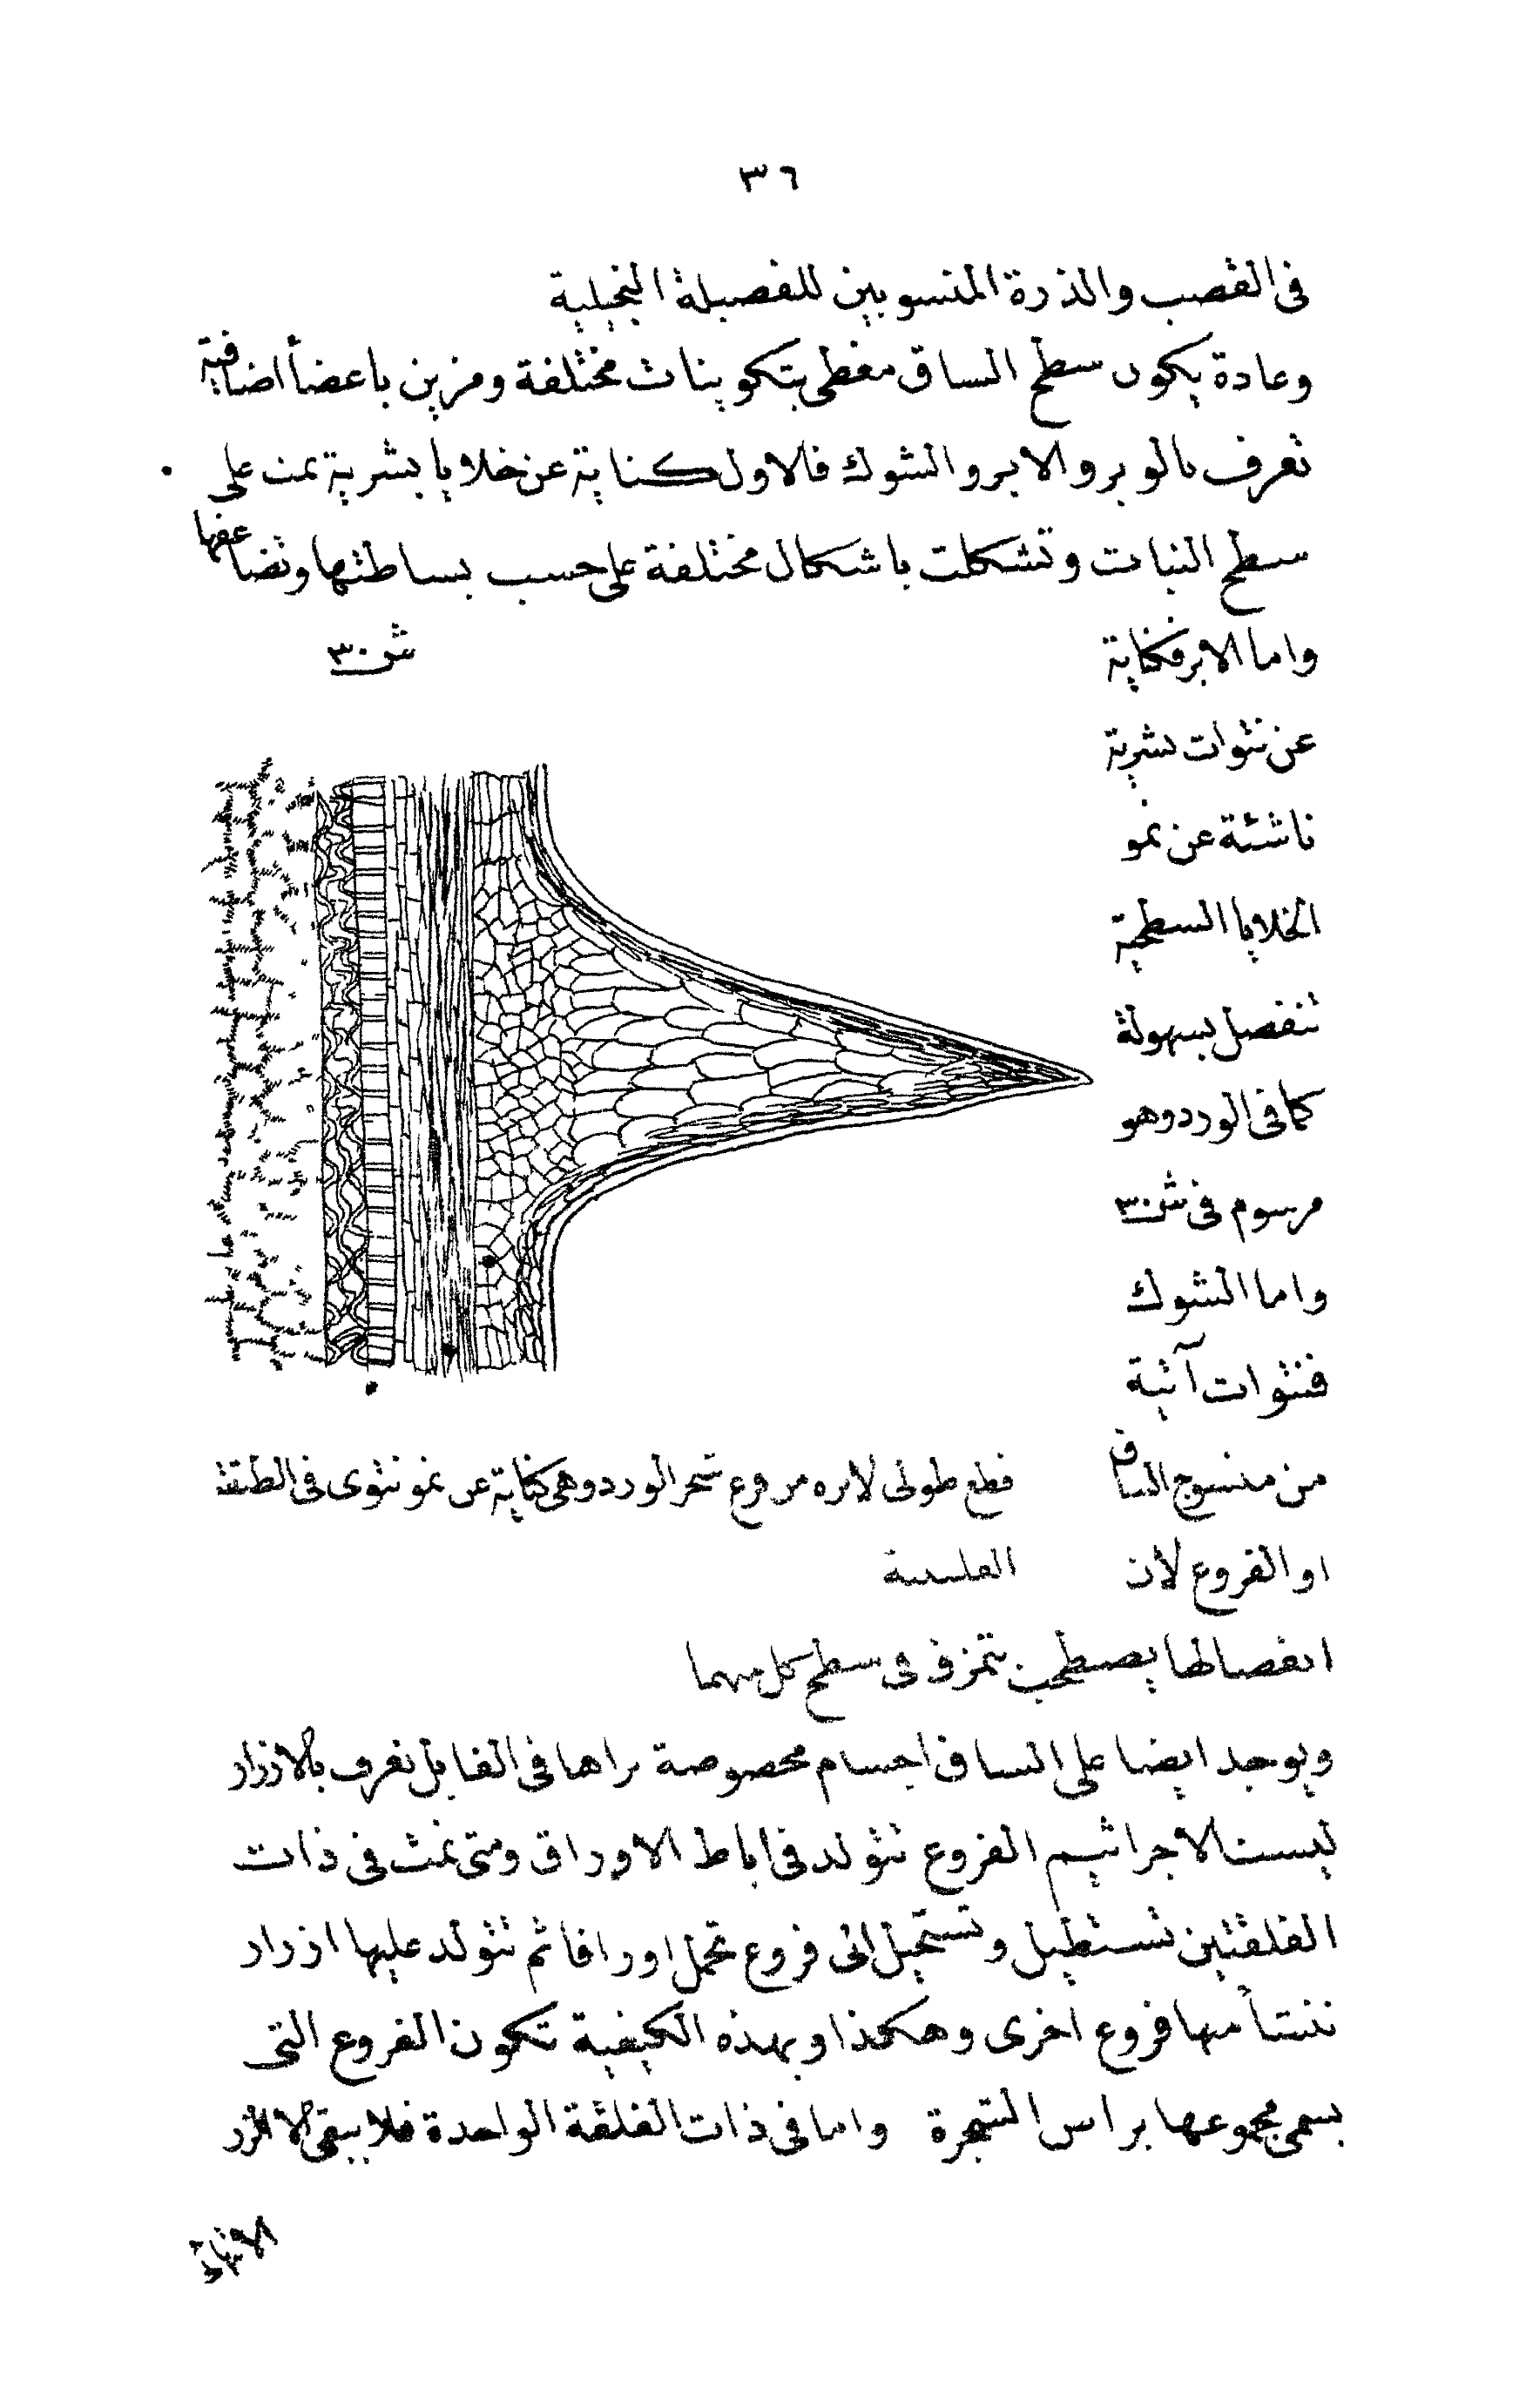 ٣٦
فى القصب والذرة المنسوبين للفصيلة النجيلية
وعادة يكون سطح الساق مغطى بتكوينات مختلفة ومزين باعضأ اضافية
تعرف بالوبر والابر والشوك فالاول كناية عن خلايا بشرية نمت على
سطح النبات وتشكلت باشكال مختلفة على حسب بساطتها وتضاعفها
واما الابر فكناية
عن نتوات بشرية
ناشئة عن نمو
الخلايا السطحية
تنفصل بسهولة
كما فى الورد وهو
مرسوم فى ش٣٠
واما الشوك
فنتوات آتية
من منسوج الساق
او الفروع لأن
ش ٣٠
قطع طولى لابره من فرع شجر الورد وهى كناية عن نمو نتوى فى الطبقة
الفلينية
انفصالها يصطحب بتمزق فى سطح كل منهما
ويوجد ايضا على الساق اجسام مخصوصة نراها فى القابل تعرف بالازرار
ليست الا جراثيم الفروع تتولد فى اباط الاوراق ومتى نمت فى ذات
الفلقتين تستطيل وتستحيل الى فروع تحمل اوراقا ثم تتولد عليها ازرار
تنتأ منها فروع اخرى وهكذا وبهذه الكيفية تكون الفروع التى
يسمى مجموعها براس الشجرة واما فى ذات الفلقة الواحدة فلا يبقى الا الزر